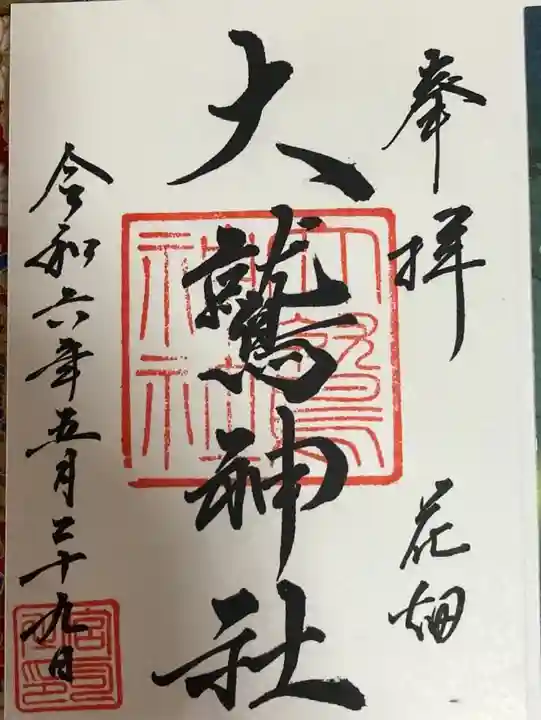 奉拝 花畑
大鷲神社
令和六年五月二十九日